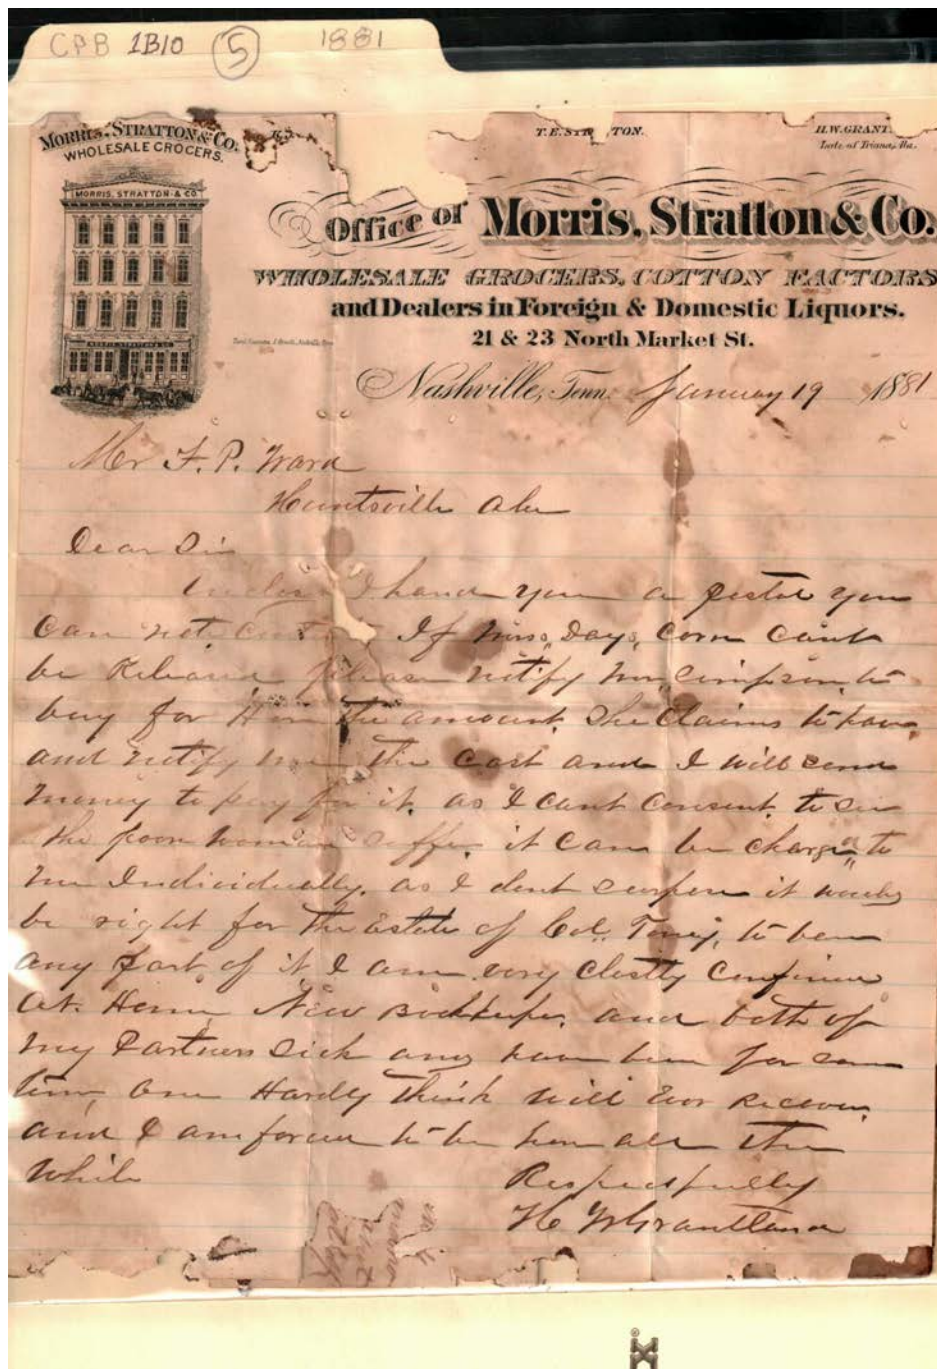 CPB 1B10 5 1881
MORRIS, STRATTON & CO.
WHOLESALE GROCERS.
MORRIS, STRATTON & CO
T. E. STR TON.
H. W. GRANT
Late of Triana, Ala.
Office of Morris, Stratton & Co.
WHOLESALE GROCERS, COTTON FACTORS
and Dealers in Foreign & Domestic Liquors.
21 & 23 North Market St.
Nashville, Tenn. January 19 1881
Mr F. P. Ward
Huntsville Ala
Dear Sir
I hand you a postal you
can not If Miss Days, corn cant
be Released please notify Mr Simpson, to
buy for Him the amount. She Claims to have,
and notify me the Cost and I will send
money to pay for it, as I cant Consent, to see
the poor woman suffer, it can be charge to
me Individually, as I dont suspose it would
be right for the Estate of Col. Toney, to bear
any part, of it I am very closely confined
at Home New Bookkeeper, and both of
my Partners Sick and have been for some
time, one Hardly think will Ever Recover,
and I am forced to be here all the
while
Respectfully
H W Grantland